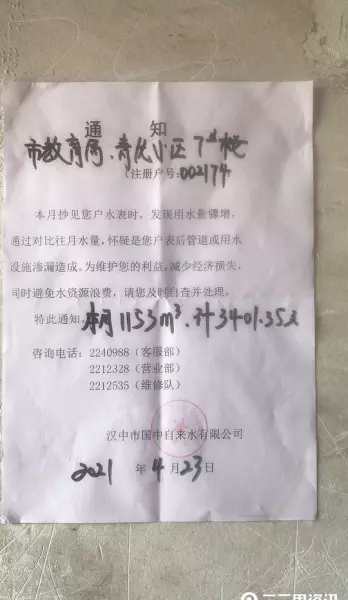 通 知
市教育局、育优小区 7#楼
(注册户号:002174
本月抄见您户水表时，发现用水量骤增，
通过对比往月水量，怀疑是您户表后管道或用水
设施渗漏造成。为维护您的利益，减少经济损失，
同时避免水资源浪费，请您及时自查并处理。
特此通知 本月1153m³.计3401.35元
咨询电话：2240988（客服部）
2212328（营业部）
2212535（维修队）
汉中市国中自来水有限公司
2021 年 4 月 23 日